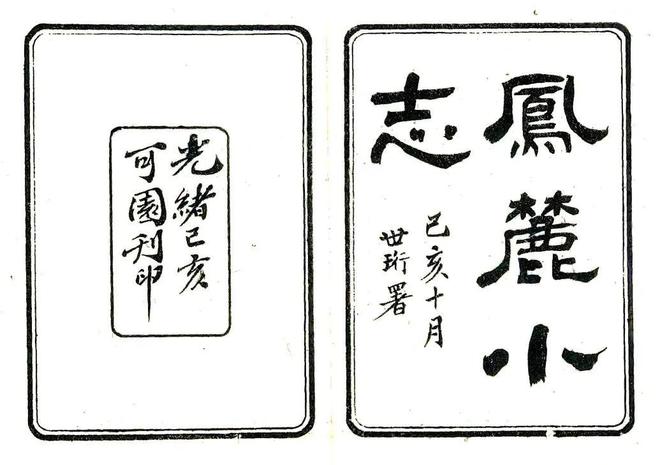 鳳麓小
志
己亥十月
世珩署
光緒己亥
可園刊印